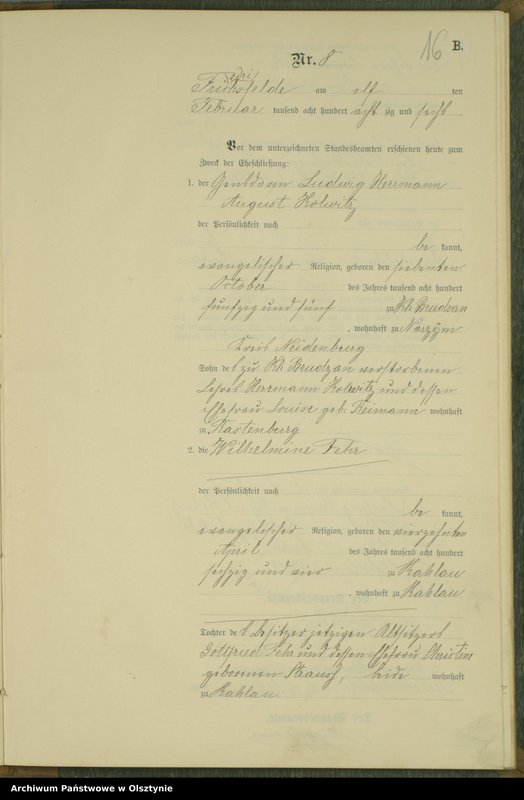 16 B.
Nr. 8
Friedrichsfelde am elf ten
Februar tausend acht hundert acht zig und sechs
Vor dem unterzeichneten Standesbeamten erschienen heute zum
Zweck der Eheschließung:
1. der Gendarm Ludwig Herrmann
August Kolwitz
der Persönlichkeit nach
be kannt,
evangelischer Religion, geboren den siebenten
October des Jahres tausend acht hundert
fünfzig und fünf zu Kl. Brudzan
, wohnhaft zu Narzym
Kreis Neidenburg
Sohn des zu Kl. Brudzan verstorbenen
Lehrers Herrmann Kolwitz und dessen
Ehefrau Louise geb. Reimann wohnhaft
zu Rastenburg
2. die Wilhelmine Fehr
der Persönlichkeit nach
be kannt,
evangelischer Religion, geboren den vierzehnten
April des Jahres tausend acht hundert
sechzig und vier zu Kahlau
, wohnhaft zu Kahlau
Tochter des Besitzer jetzigen Altsitzers
Gottfried Fehr und dessen Ehefrau Christine
geborenen Strauß, beide wohnhaft
zu Kahlau
Archiwum Państwowe w Olsztynie